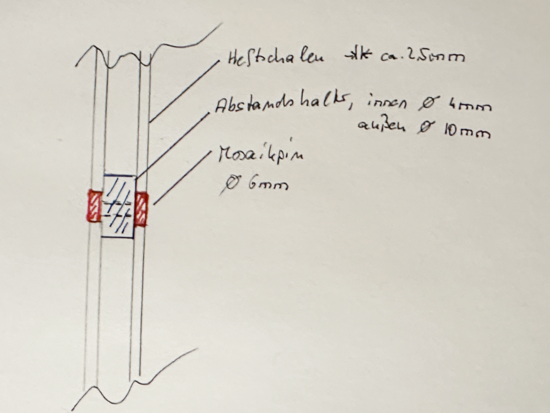 Heftschalen stk ca. 2,50mm
Abstandshalter, innen Ø 4mm
außen Ø 10mm
Mosaikpin
Ø 6mm